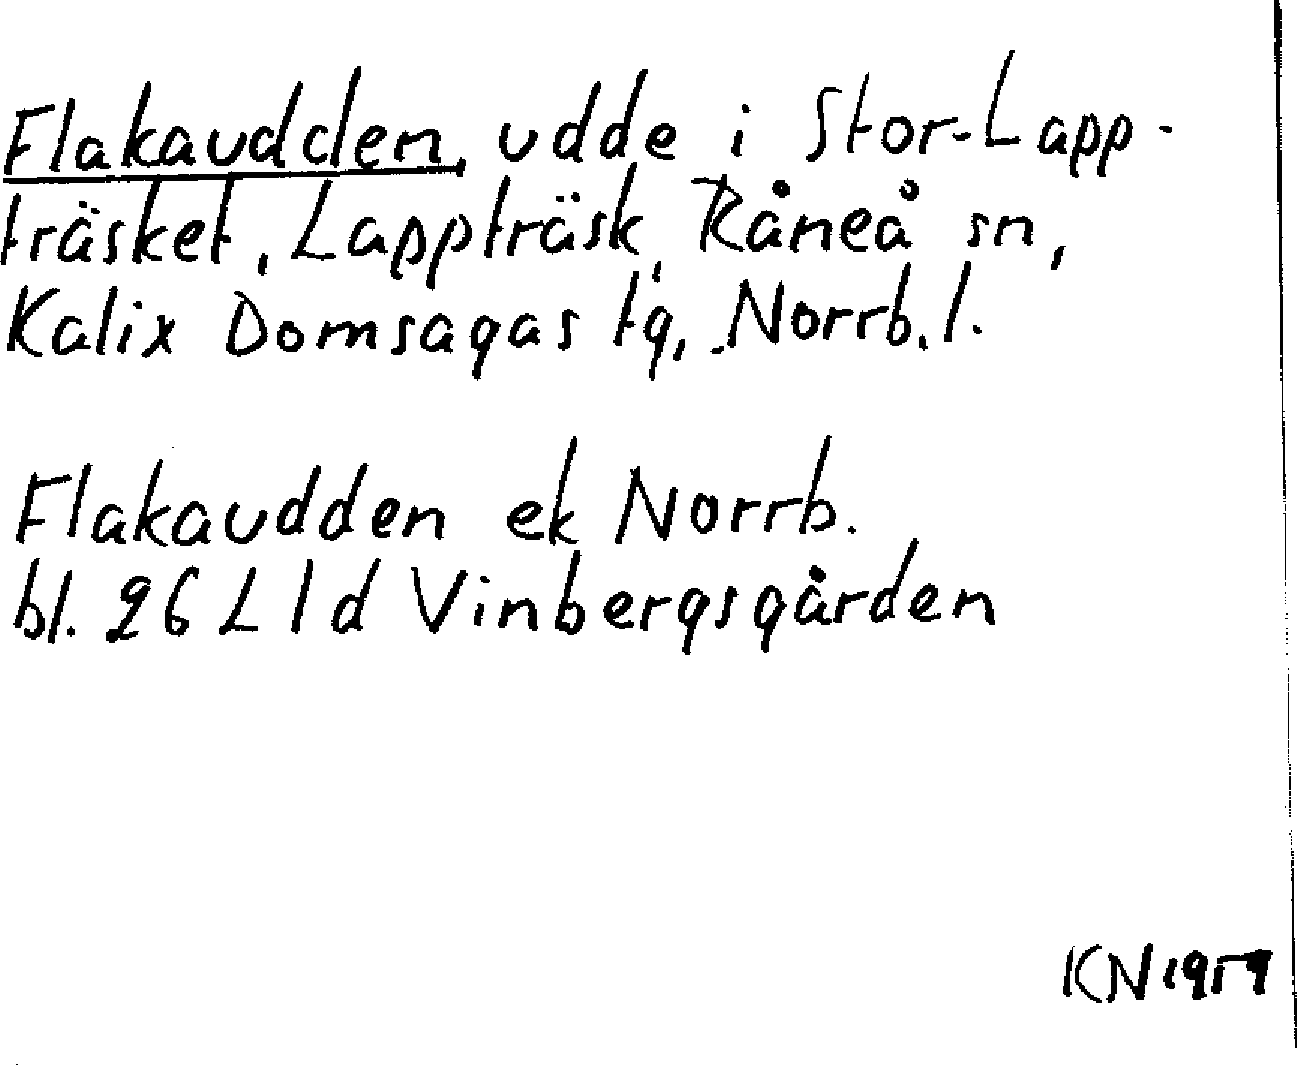 Flakaudden, udde i Stor-Lapp-
träsket, Lappträsk, Råneå sn,
Kalix Domsagas tg, Norrb. l.
Flakaudden ek Norrb.
bl. 26 L l d Vinbergsgården
KN 1959